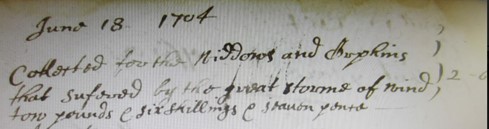 June 18 1704
Collected for the Widdows and Orphins
that sufered by the great storme of wind
tow pounds & six shillings & seaven pence
2